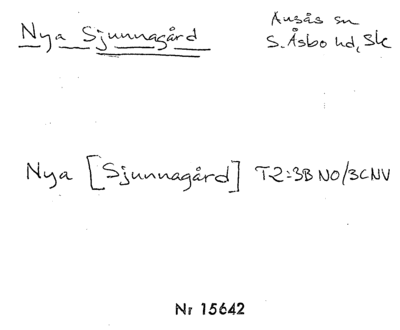 Nya Sjunnagård
Ausås sn
S. Åsbo hd, Sk
Nya [Sjunnagård] T2:3B NO/3C NV
Nr 15642